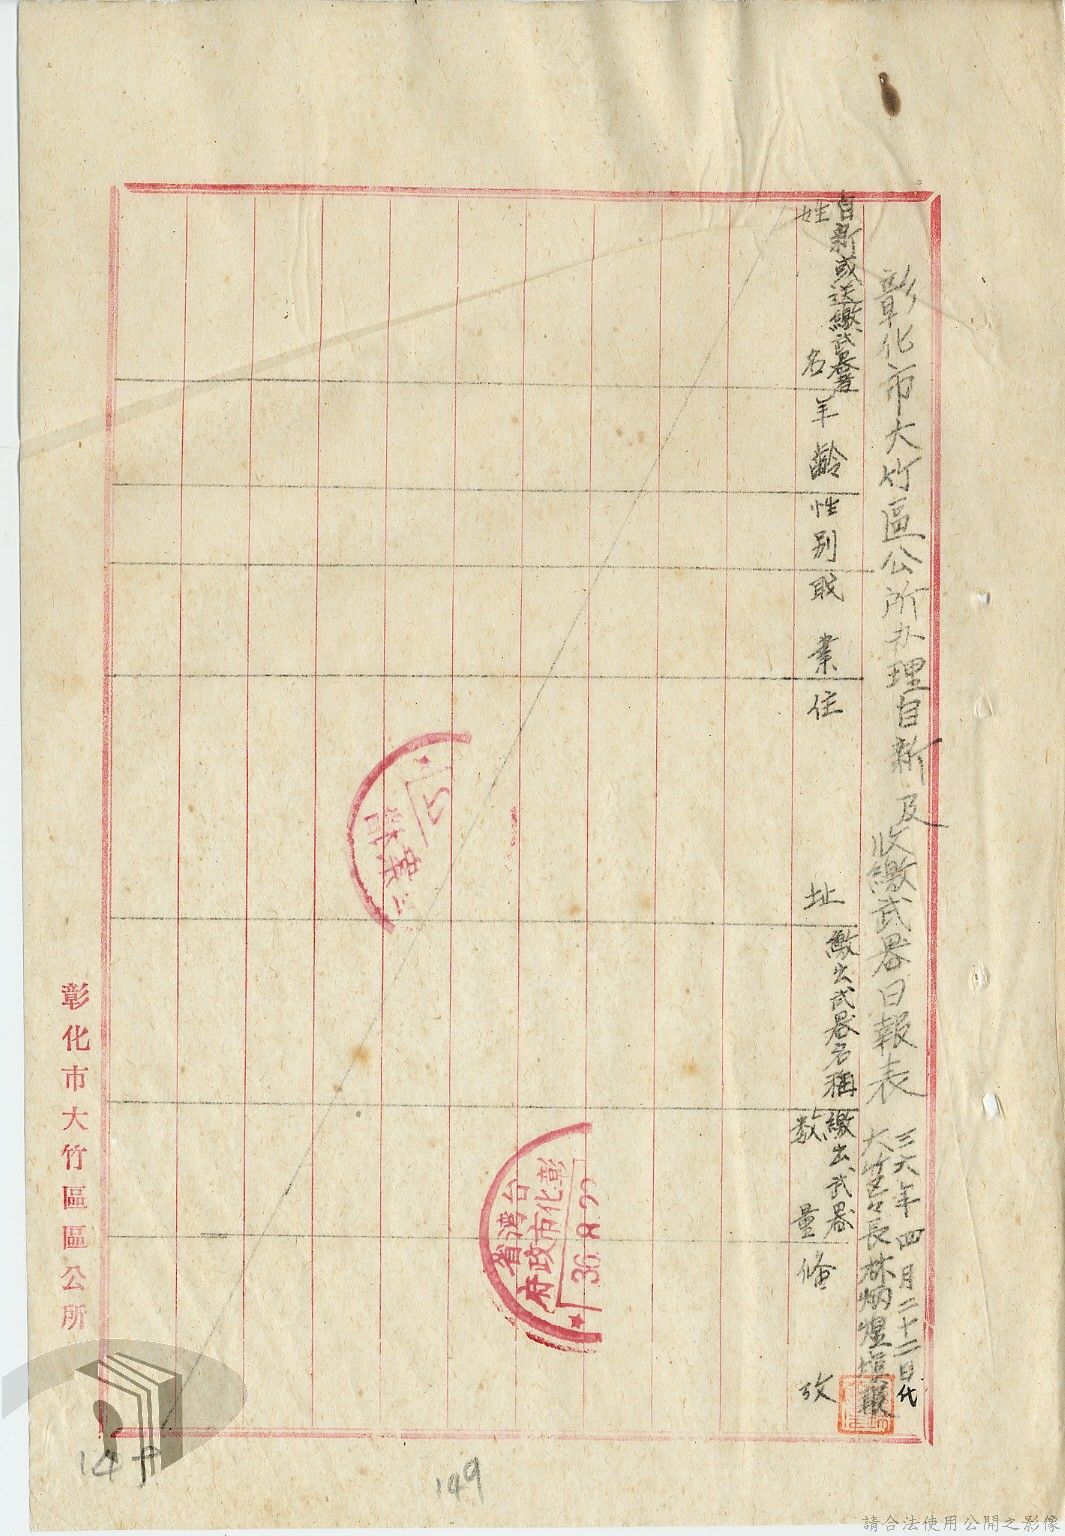 彰化市大竹區公所办理自新及收繳武器日報表
三六年四月二十二日
大竹區區長林炳煌填報
代
自新或送繳武器者
姓名
年齡
性別
職業
住址
繳出武器名稱
繳出武器
數量
備攷
台灣省
彰化市政府
36.8.22
彰化市大竹區區公所
149
149
請合法使用公開之影像